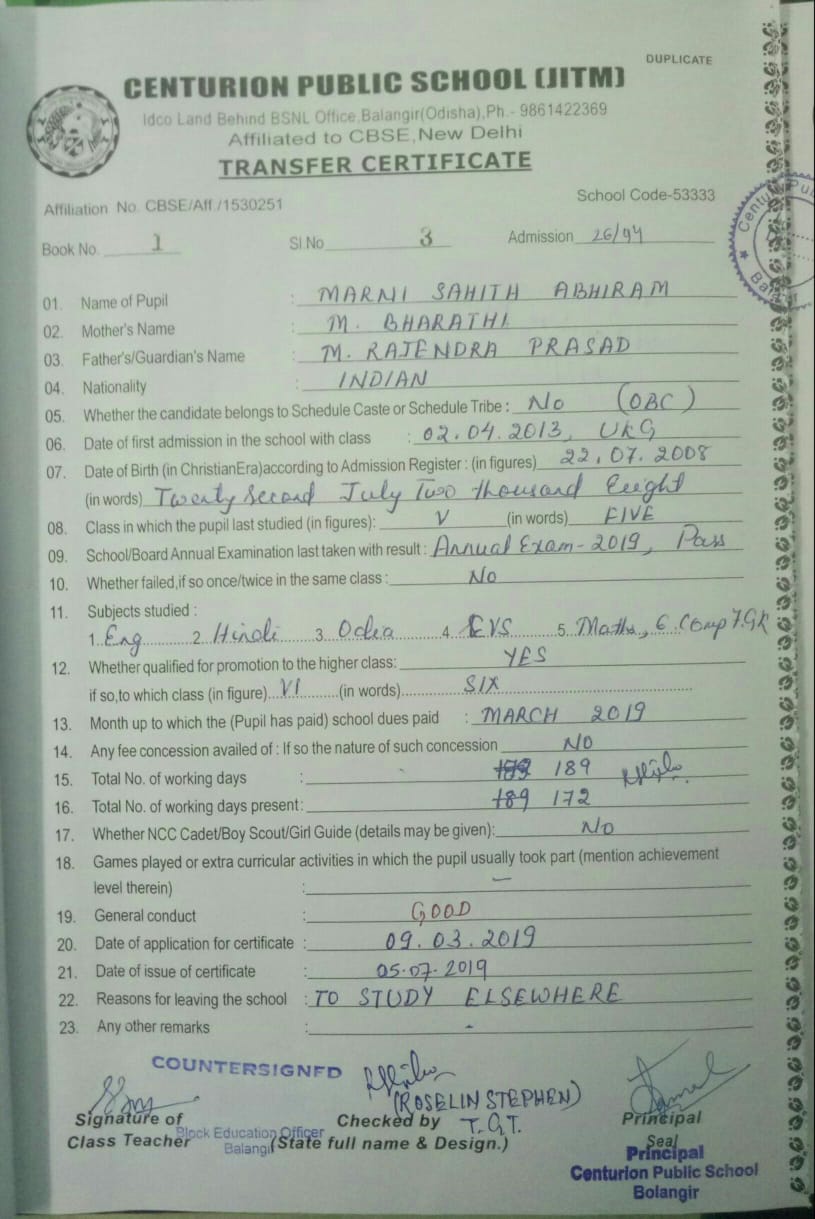 DUPLICATE
CENTURION PUBLIC SCHOOL (JITM)
Idco Land Behind BSNL Office,Balangir(Odisha),Ph.- 9861422369
Affiliated to CBSE,New Delhi
TRANSFER CERTIFICATE
Affiliation No. CBSE/Aff /1530251 School Code-53333
Book No. 1 Sl.No 3 Admission 26/94
01. Name of Pupil : MARNI SAHITH ABHIRAM
02. Mother's Name : M. BHARATHI
03. Father's/Guardian's Name : M. RAJENDRA PRASAD
04. Nationality : INDIAN
05. Whether the candidate belongs to Schedule Caste or Schedule Tribe : No (OBC)
06. Date of first admission in the school with class : 02.04.2013, UKG
07. Date of Birth (in ChristianEra)according to Admission Register : (in figures) 22.07.2008
(in words) Twenty Second July Two thousand Eeight
08. Class in which the pupil last studied (in figures): V (in words) FIVE
09. School/Board Annual Examination last taken with result : Annual Exam-2019, Pass
10. Whether failed,if so once/twice in the same class : No
11. Subjects studied :
1. Eng 2. Hindi 3. Odia 4. EVS 5. Maths, 6. Comp 7. GK
12. Whether qualified for promotion to the higher class: YES
if so,to which class (in figure) VI (in words) SIX
13. Month up to which the (Pupil has paid) school dues paid : MARCH 2019
14. Any fee concession availed of : If so the nature of such concession NO
15. Total No. of working days : 189
16. Total No. of working days present: 189 172
17. Whether NCC Cadet/Boy Scout/Girl Guide (details may be given): No
18. Games played or extra curricular activities in which the pupil usually took part (mention achievement
level therein) : –
19. General conduct : GOOD
20. Date of application for certificate : 09.03.2019
21. Date of issue of certificate : 05.07.2019
22. Reasons for leaving the school : TO STUDY ELSEWHERE
23. Any other remarks : -
COUNTERSIGNED
(ROSELIN STEPHEN)
Signature of Checked by T.G.T. Principal
Class Teacher (State full name & Design.) Seal
Block Education Officer
Balangir
Principal
Centurion Public School
Bolangir